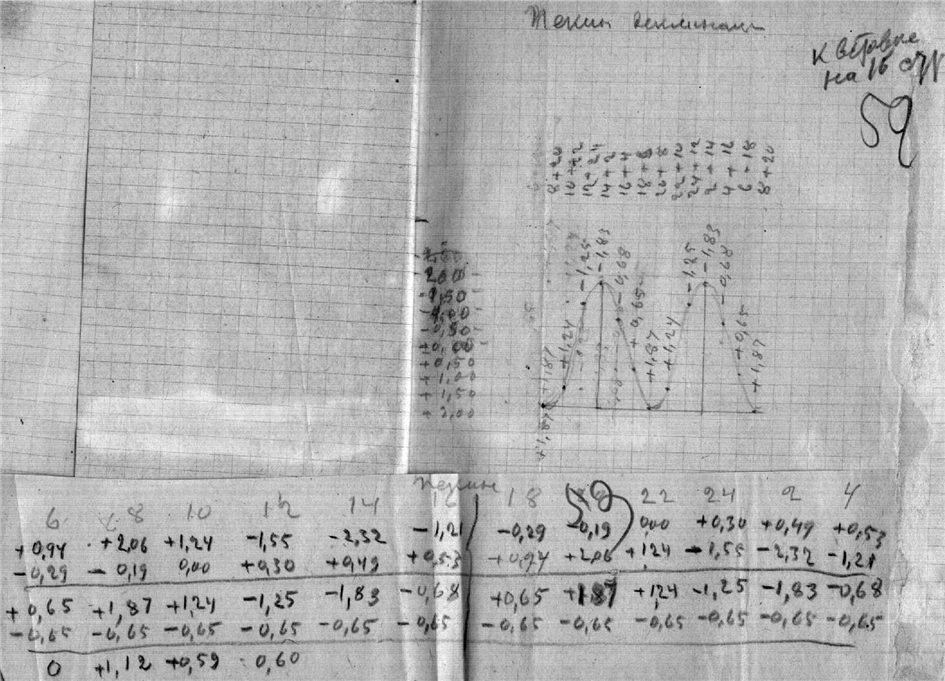 Пекин деклинац
к вставке
на 16 стр
59
8 + 20
10 + 22
12 + 24
14 + 2
16 + 4
18 + 6
20 + 8
22 + 10
24 + 12
2 + 14
4 + 16
6 + 18
8 + 20
-2,00
-1,50
-1,00
-0,50
±0,00
+0,50
+1,00
+1,50
+2,00
+1,87
+1,24
-1,25
-1,83
-0,68
+0,65
+1,87
+1,24
-1,25
-1,83
-0,68
+0,65
+1,87
Пекин
59
6 8 10 12 14 16 18 20 22 24 2 4
+0,94 +2,06 +1,24 -1,55 -2,32 -1,21 -0,29 -0,19 0,00 +0,30 +0,49 +0,53
-0,29 -0,19 0,00 +0,30 +0,49 +0,53 +0,94 +2,06 +1,24 -1,55 -2,32 -1,21
+0,65 +1,87 +1,24 -1,25 -1,83 -0,68 +0,65 +1,87 +1,24 -1,25 -1,83 -0,68
-0,65 -0,65 -0,65 -0,65 -0,65 -0,65 -0,65 -0,65 -0,65 -0,65 -0,65 -0,65
0 +1,12 +0,59 -0,60